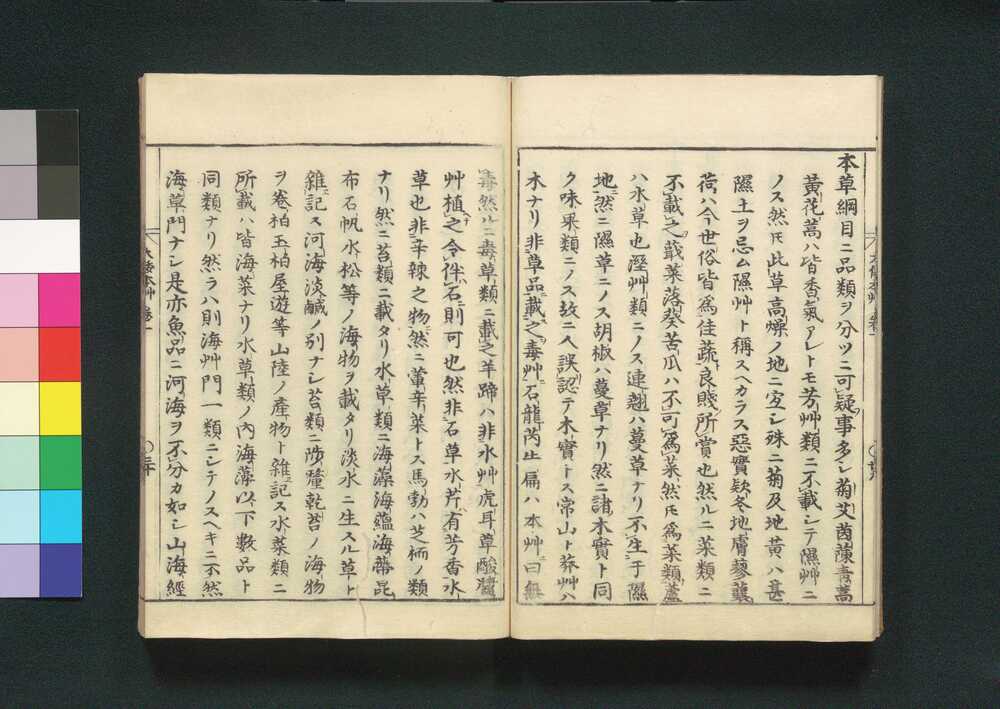 本草綱目ニ品類ヲ分ツニ可疑事多シ菊艾茵蔯青蒿
黃花蒿ハ皆香氣アレトモ芳艸類ニ不載シテ隰艸ニ
ノス然𪜈此草高燥ノ地ニ宜シ殊ニ菊及地黃ハ甚
隰土ヲ忌ム隰艸ト稱スヘカラス惡實欵冬地膚蓼蘘
荷ハ今世俗皆爲佳蔬良賤所賞也然ルニ菜類ニ
不載之蕺菜落葵苦瓜ハ不可爲菜然𪜈爲菜類蘆
ハ水草也隰艸類ニノス連翹ハ蔓草ナリ不生于隰
地然ニ隰草ニノス胡椒ハ蔓草ナリ然ニ諸木實ト同
ク味果類ニノス故ニ人誤認テ木實トス常山ト莽艸ハ
木ナリ非草品載之毒艸石龍芮生扁ハ本艸曰無
毒然ルニ毒草類ニ載之羊蹄ハ非水艸虎耳草酸醬
艸植之令伴石則可也然非石草水芹有芳香水
草也非辛辣之物然ニ葷辛菜トス馬勃ハ芝栭ノ類
ナリ然ニ苔類ニ載タリ水草類ニ海藻海蘊海帶昆
布石帆水松等ノ海物ヲ載タリ淡水ニ生スル草ト
雜記ス河海淡鹹ノ別ナシ苔類ニ陟釐乾苔ノ海物
ヲ卷柏玉柏屋遊等山陸ノ產物ト雜記ス水菜類ニ
所載ハ皆海菜ナリ水草類ノ內海藻以下數品ト
同類ナリ然ラハ則海艸門一類ニシテノスヘキニ不然
海草門ナシ是亦魚品ニ河海ヲ不分カ如シ山海經